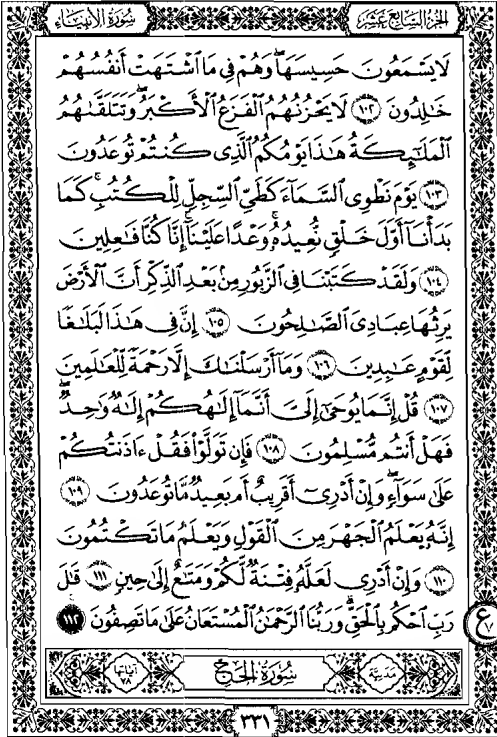 الجزء السابع عشر
سورة الأنبياء
لَا يَسْمَعُونَ حَسِيسَهَا ۖ وَهُمْ فِي مَا ٱشْتَهَتْ أَنفُسُهُمْ
خَـٰلِدُونَ ١٠٢ لَا يَحْزُنُهُمُ ٱلْفَزَعُ ٱلْأَكْبَرُ وَتَتَلَقَّىٰهُمُ
ٱلْمَلَـٰٓئِكَةُ هَـٰذَا يَوْمُكُمُ ٱلَّذِى كُنتُمْ تُوعَدُونَ
١٠٣ يَوْمَ نَطْوِى ٱلسَّمَآءَ كَطَىِّ ٱلسِّجِلِّ لِلْكُتُبِ ۚ كَمَا
بَدَأْنَآ أَوَّلَ خَلْقٍ نُّعِيدُهُۥ ۚ وَعْدًا عَلَيْنَآ ۚ إِنَّا كُنَّا فَـٰعِلِينَ
١٠٤ وَلَقَدْ كَتَبْنَا فِى ٱلزَّبُورِ مِنۢ بَعْدِ ٱلذِّكْرِ أَنَّ ٱلْأَرْضَ
يَرِثُهَا عِبَادِىَ ٱلصَّـٰلِحُونَ ١٠٥ إِنَّ فِى هَـٰذَا لَبَلَـٰغًا
لِّقَوْمٍ عَـٰبِدِينَ ١٠٦ وَمَآ أَرْسَلْنَـٰكَ إِلَّا رَحْمَةً لِّلْعَـٰلَمِينَ
١٠٧ قُلْ إِنَّمَا يُوحَىٰٓ إِلَىَّ أَنَّمَآ إِلَـٰهُكُمْ إِلَـٰهٌ وَٰحِدٌ ۖ
فَهَلْ أَنتُم مُّسْلِمُونَ ١٠٨ فَإِن تَوَلَّوْا۟ فَقُلْ ءَاذَنتُكُمْ
عَلَىٰ سَوَآءٍ ۖ وَإِنْ أَدْرِىٓ أَقَرِيبٌ أَم بَعِيدٌ مَّا تُوعَدُونَ ١٠٩
إِنَّهُۥ يَعْلَمُ ٱلْجَهْرَ مِنَ ٱلْقَوْلِ وَيَعْلَمُ مَا تَكْتُمُونَ
١١٠ وَإِنْ أَدْرِى لَعَلَّهُۥ فِتْنَةٌ لَّكُمْ وَمَتَـٰعٌ إِلَىٰ حِينٍ ١١١ قَـٰلَ
رَبِّ ٱحْكُم بِٱلْحَقِّ ۗ وَرَبُّنَا ٱلرَّحْمَـٰنُ ٱلْمُسْتَعَانُ عَلَىٰ مَا تَصِفُونَ ١١٢
ع
مدنية
سورة الحج
آياتها
٣٣١